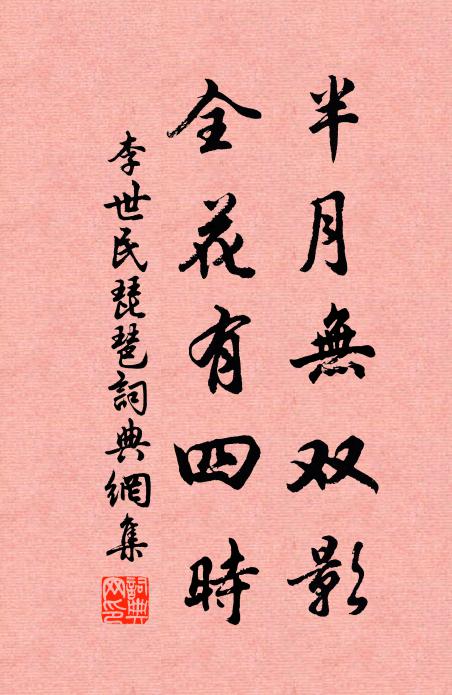 半月無双影
全花有四時
李世民琵琶詞典網集
詞典網印